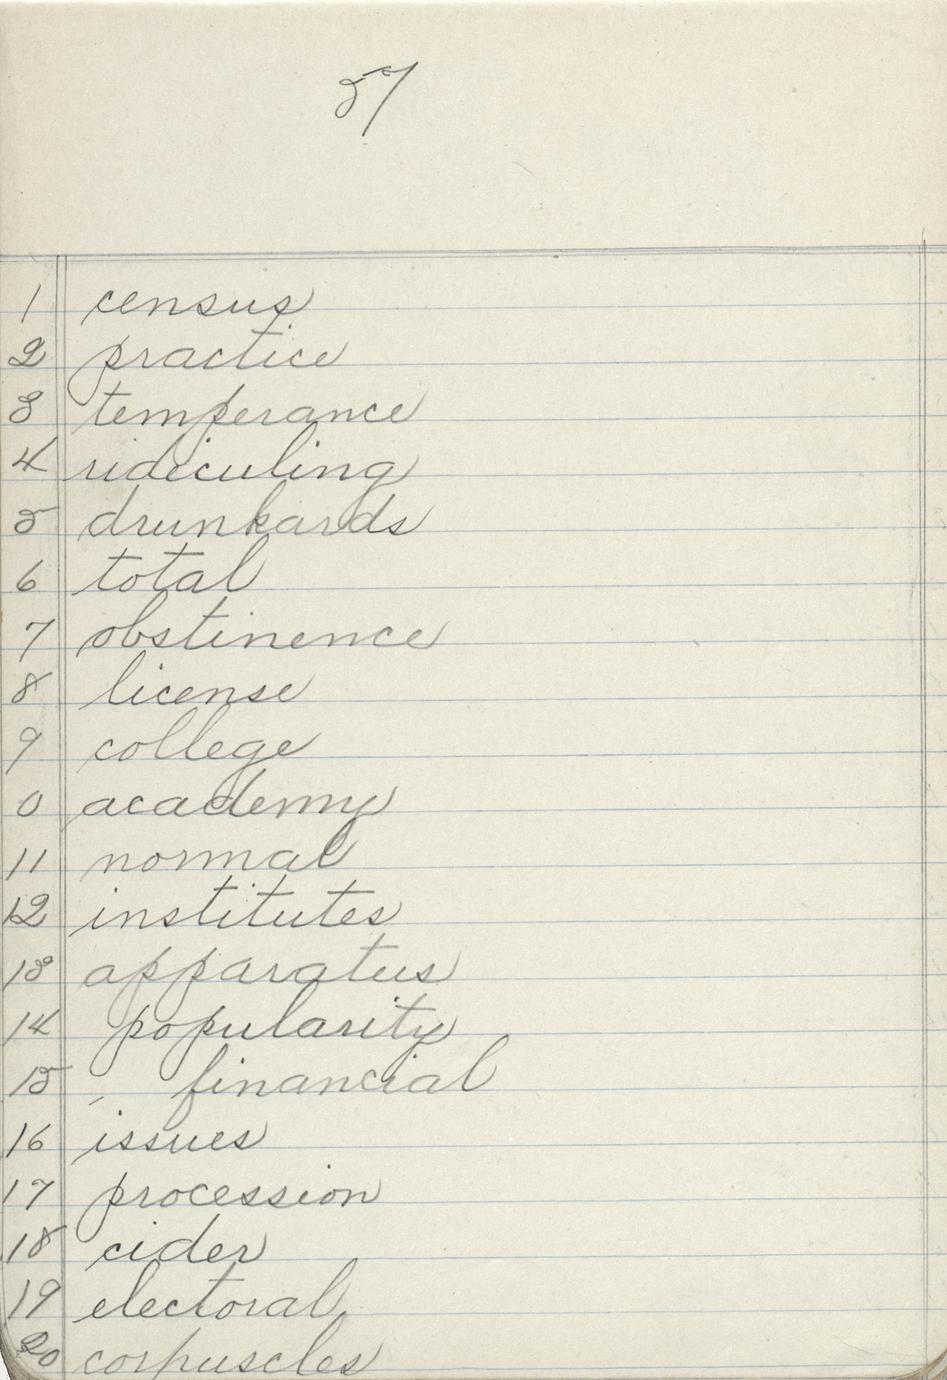 57
1 census
2 practice
3 temperance
4 ridiculing
5 drunkards
6 total
7 obstinence
8 license
9 college
0 academy
11 normal
12 institutes
13 apparatus
14 popularity
15 , financial
16 issues
17 procession
18 cider
19 electoral
20 corpuscles